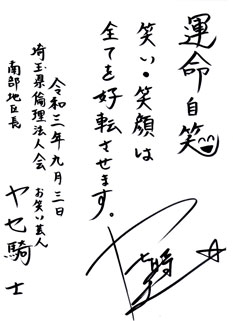 運命自笑
笑い・笑顔は
全てを好転させます。
令和三年九月三日
埼玉県倫理法人会
南部地区長
お笑い芸人
ヤセ騎士